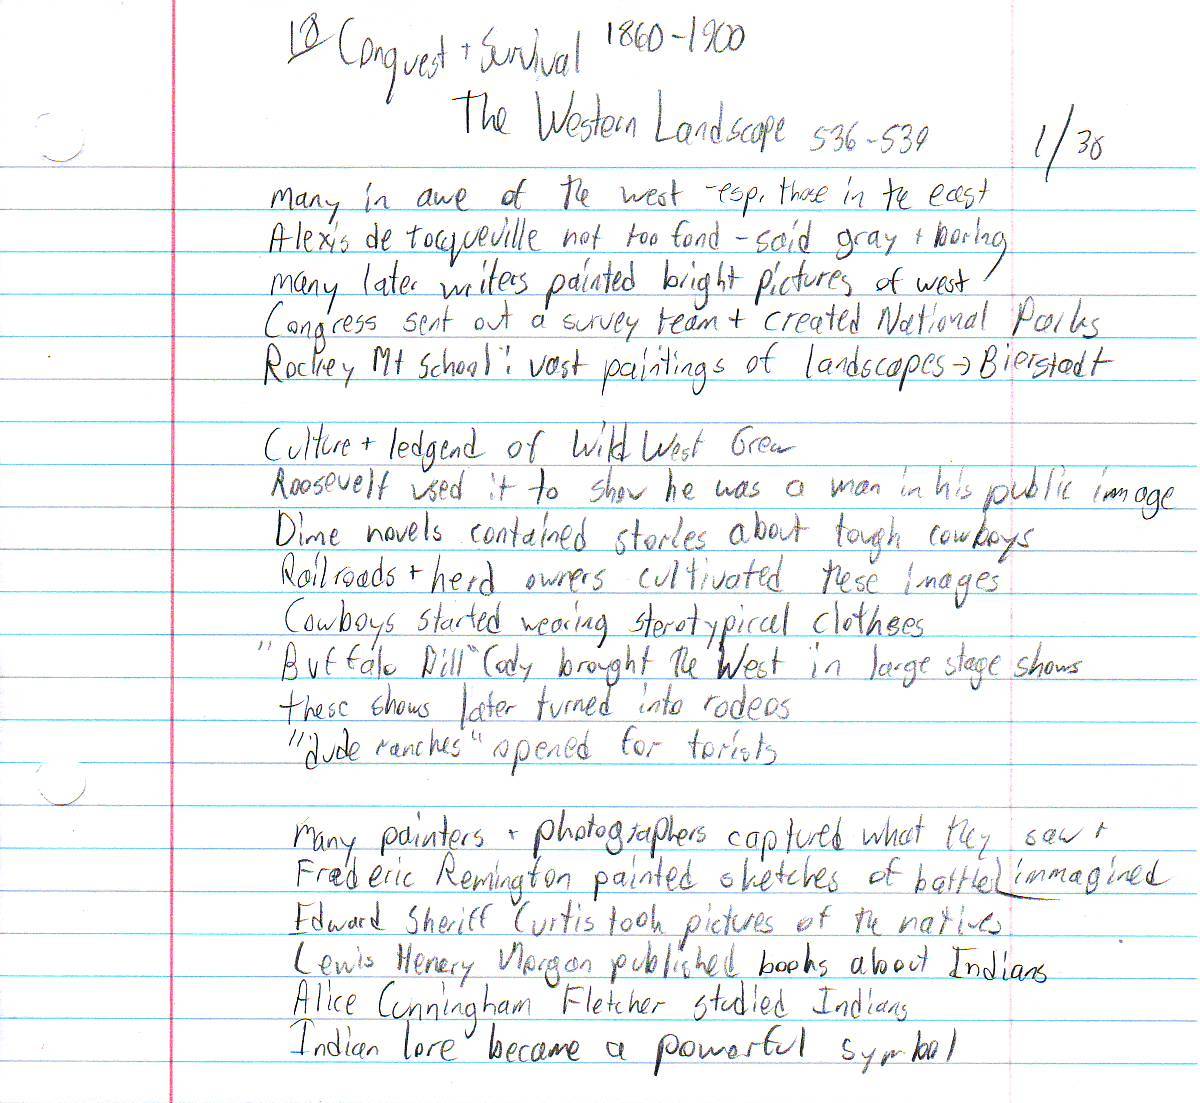 18 Conquest + Survival 1860-1900
The Western Landscape 536-539 1/30
many in awe of the west - esp. those in the east
Alexis de tocqueville not too fond - said gray + boring
many later writers painted bright pictures of west
Congress sent out a survey team + created National Parks
Rockey Mt School": vast paintings of landscapes → Bierstadt
Culture + ledgend of Wild West Grew
Roosevelt used it to show he was a man in his public immage
Dime novels contained stories about tough cowboys
Railroads + herd owners cultivated these images
Cowboys started wearing sterotypical clothees
"Buffalo Bill" Cody brought the West in large stage shows
these shows later turned into rodeos
"dude ranches" opened for torists
Many painters + photographers captured what they saw +
Frederic Remington painted sketches of battles immagined
Edward Sheriff Curtis took pictures of the natives
Lewis Henery Morgan published books about Indians
Alice Cunningham Fletcher studied Indians
Indian lore became a powerful symbol